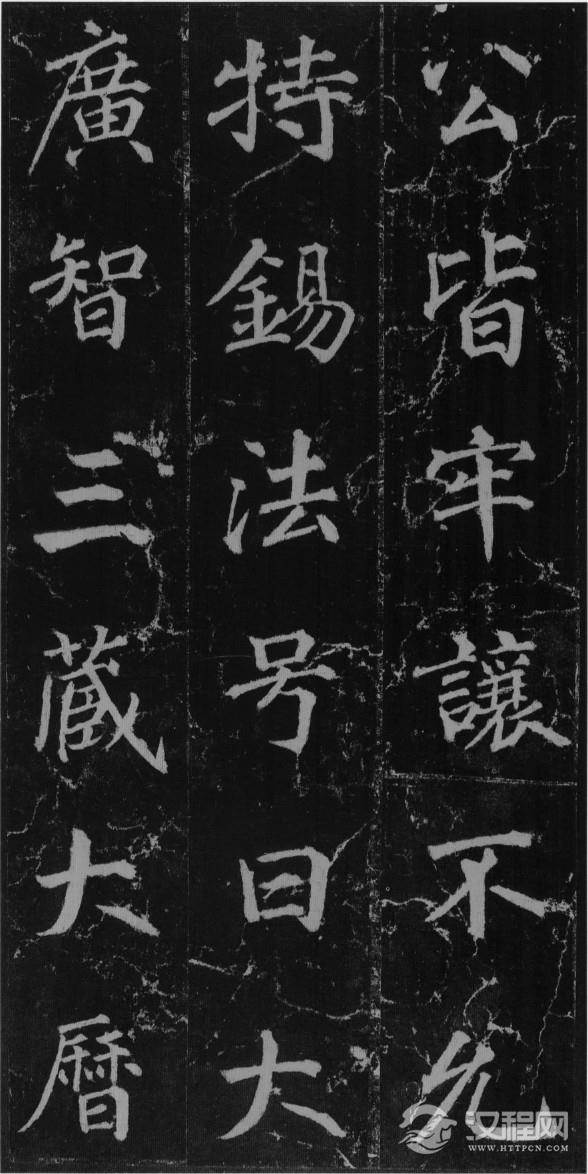 公皆牢讓不允
特錫法号曰大
廣智三藏大曆
汉程网
WWW.HTTPCN.COM